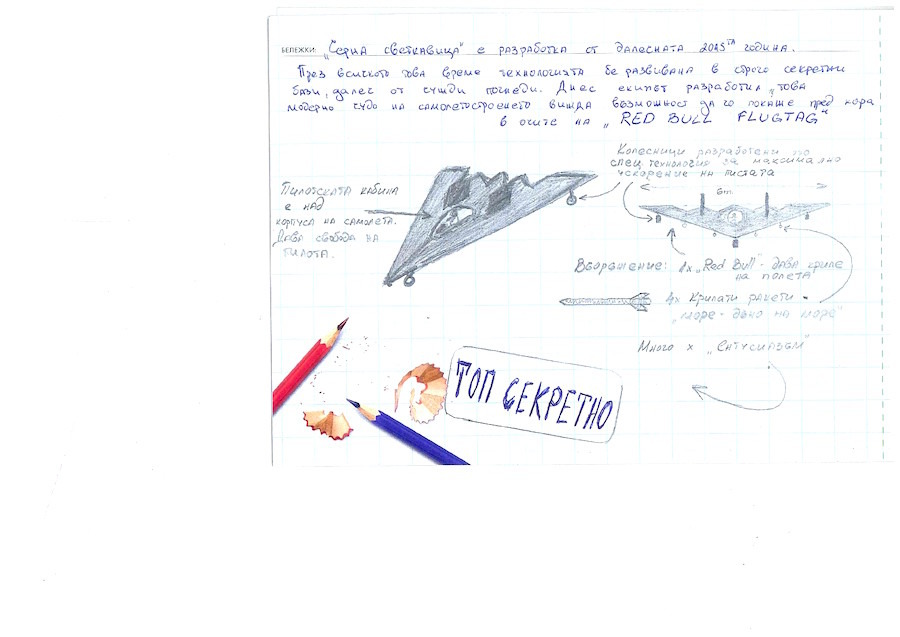 БЕЛЕЖКИ: "Черна светкавица" е разработка от далесната 2045та година.
През всиското това време технологията бе развивана в строго секретни
бази, далег от чужди погледи. Днес екипът разработил това
модерно чудо на самолетостроенето вижда възможност да го покаже пред хора
в очите на "RED BULL FLUGTAG"
Колесници разработени по
спец технология за максимално
ускорение на пистата
6m
Пилотската кабина
е над
корпуса на самолета.
Дава свобода на
пилота.
Въоръжение: 1x "Red Bull" - дава криле
на полета
4x Крилати ракети -
"море - дъно на море"
Много x "Ентусиазъм"
ТОП СЕКРЕТНО